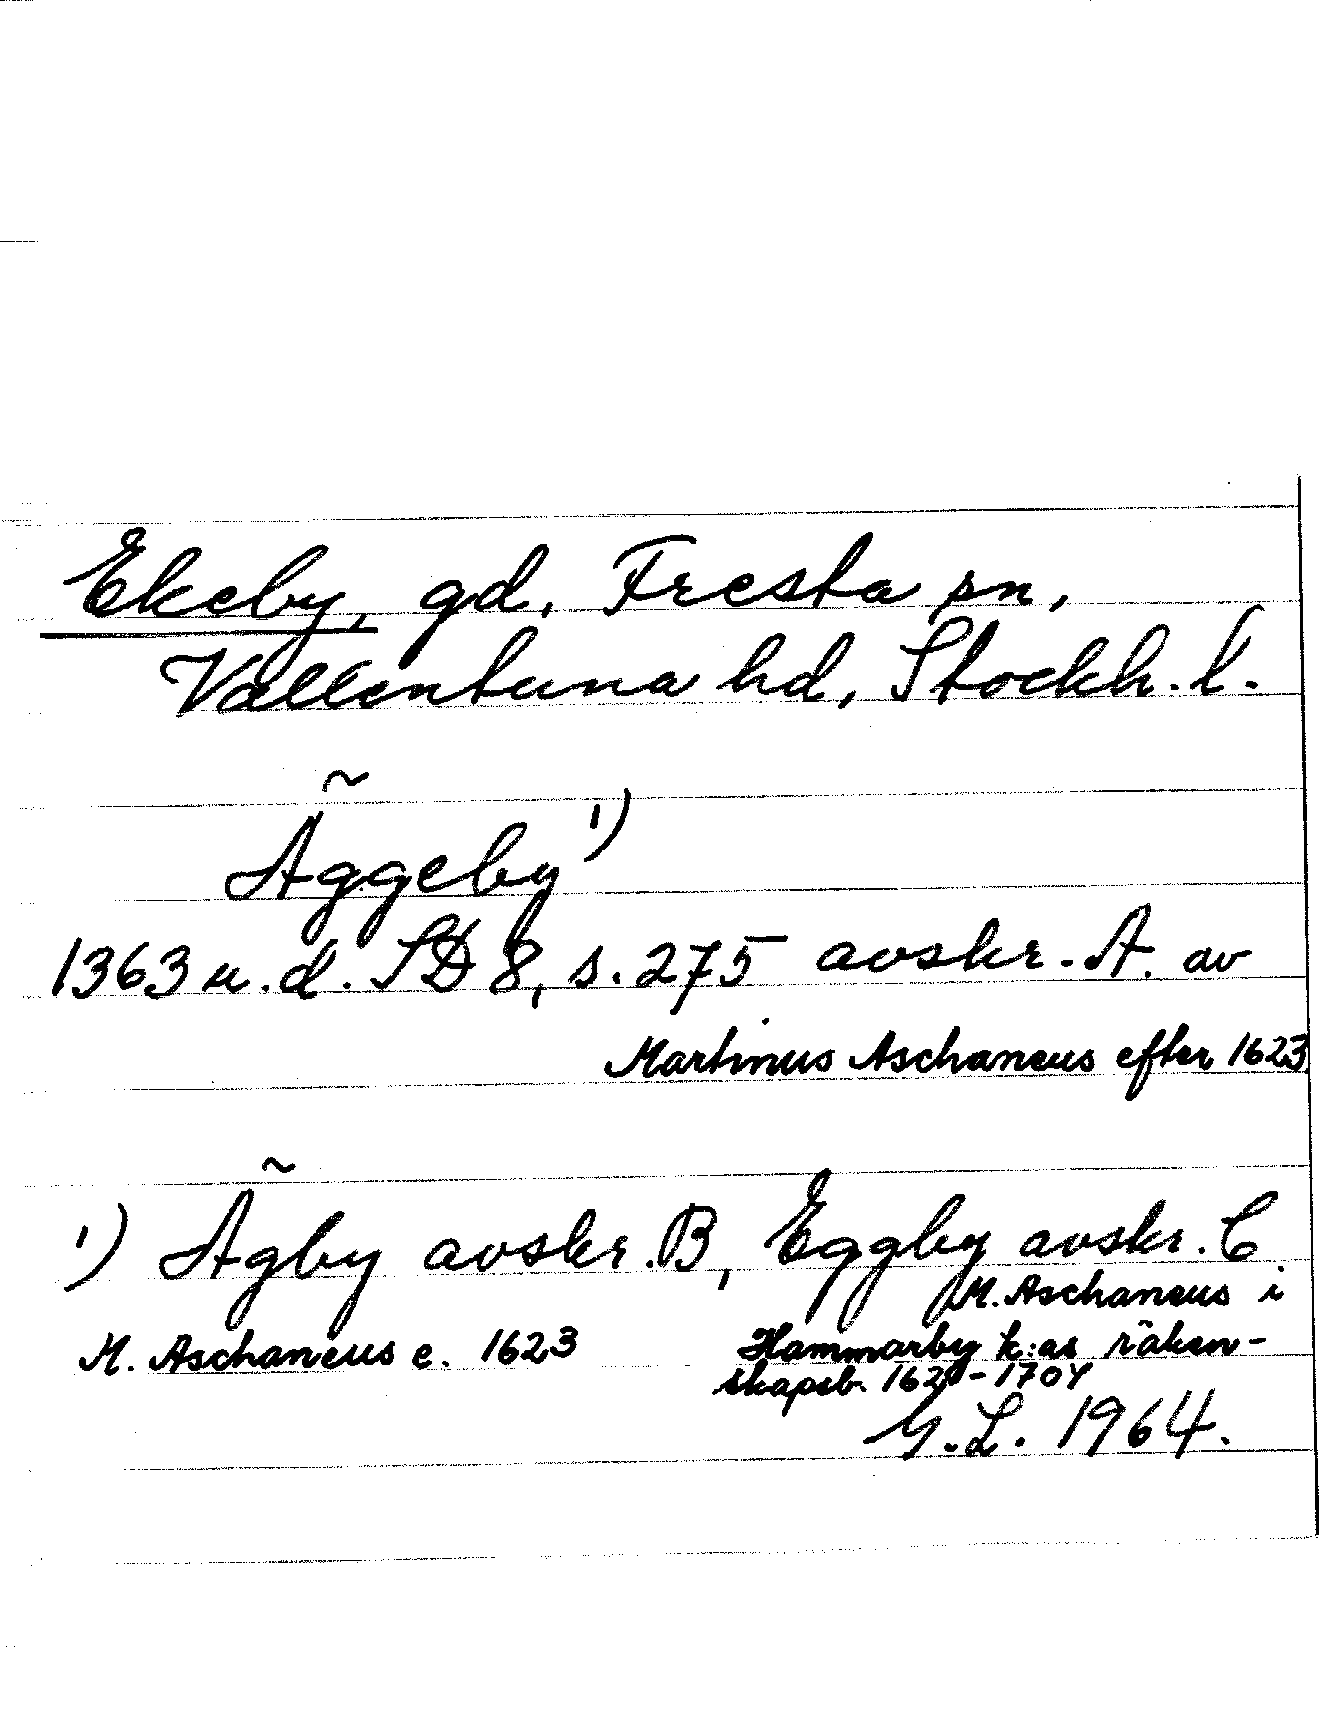 Ekeby, gd, Fresta sn,
Vallentuna hd, Stockh. l.
Äggeby 1)
1363 u. d. SD 8, s. 275 avskr. A. av
Martinus Aschaneus efter 1623
1) Ägby avskr. B, Eggby avskr. C
M. Aschaneus i
M. Aschaneus e. 1623 Hammarby k:as räken-
skapsb. 1620-1704
G. L. 1964.